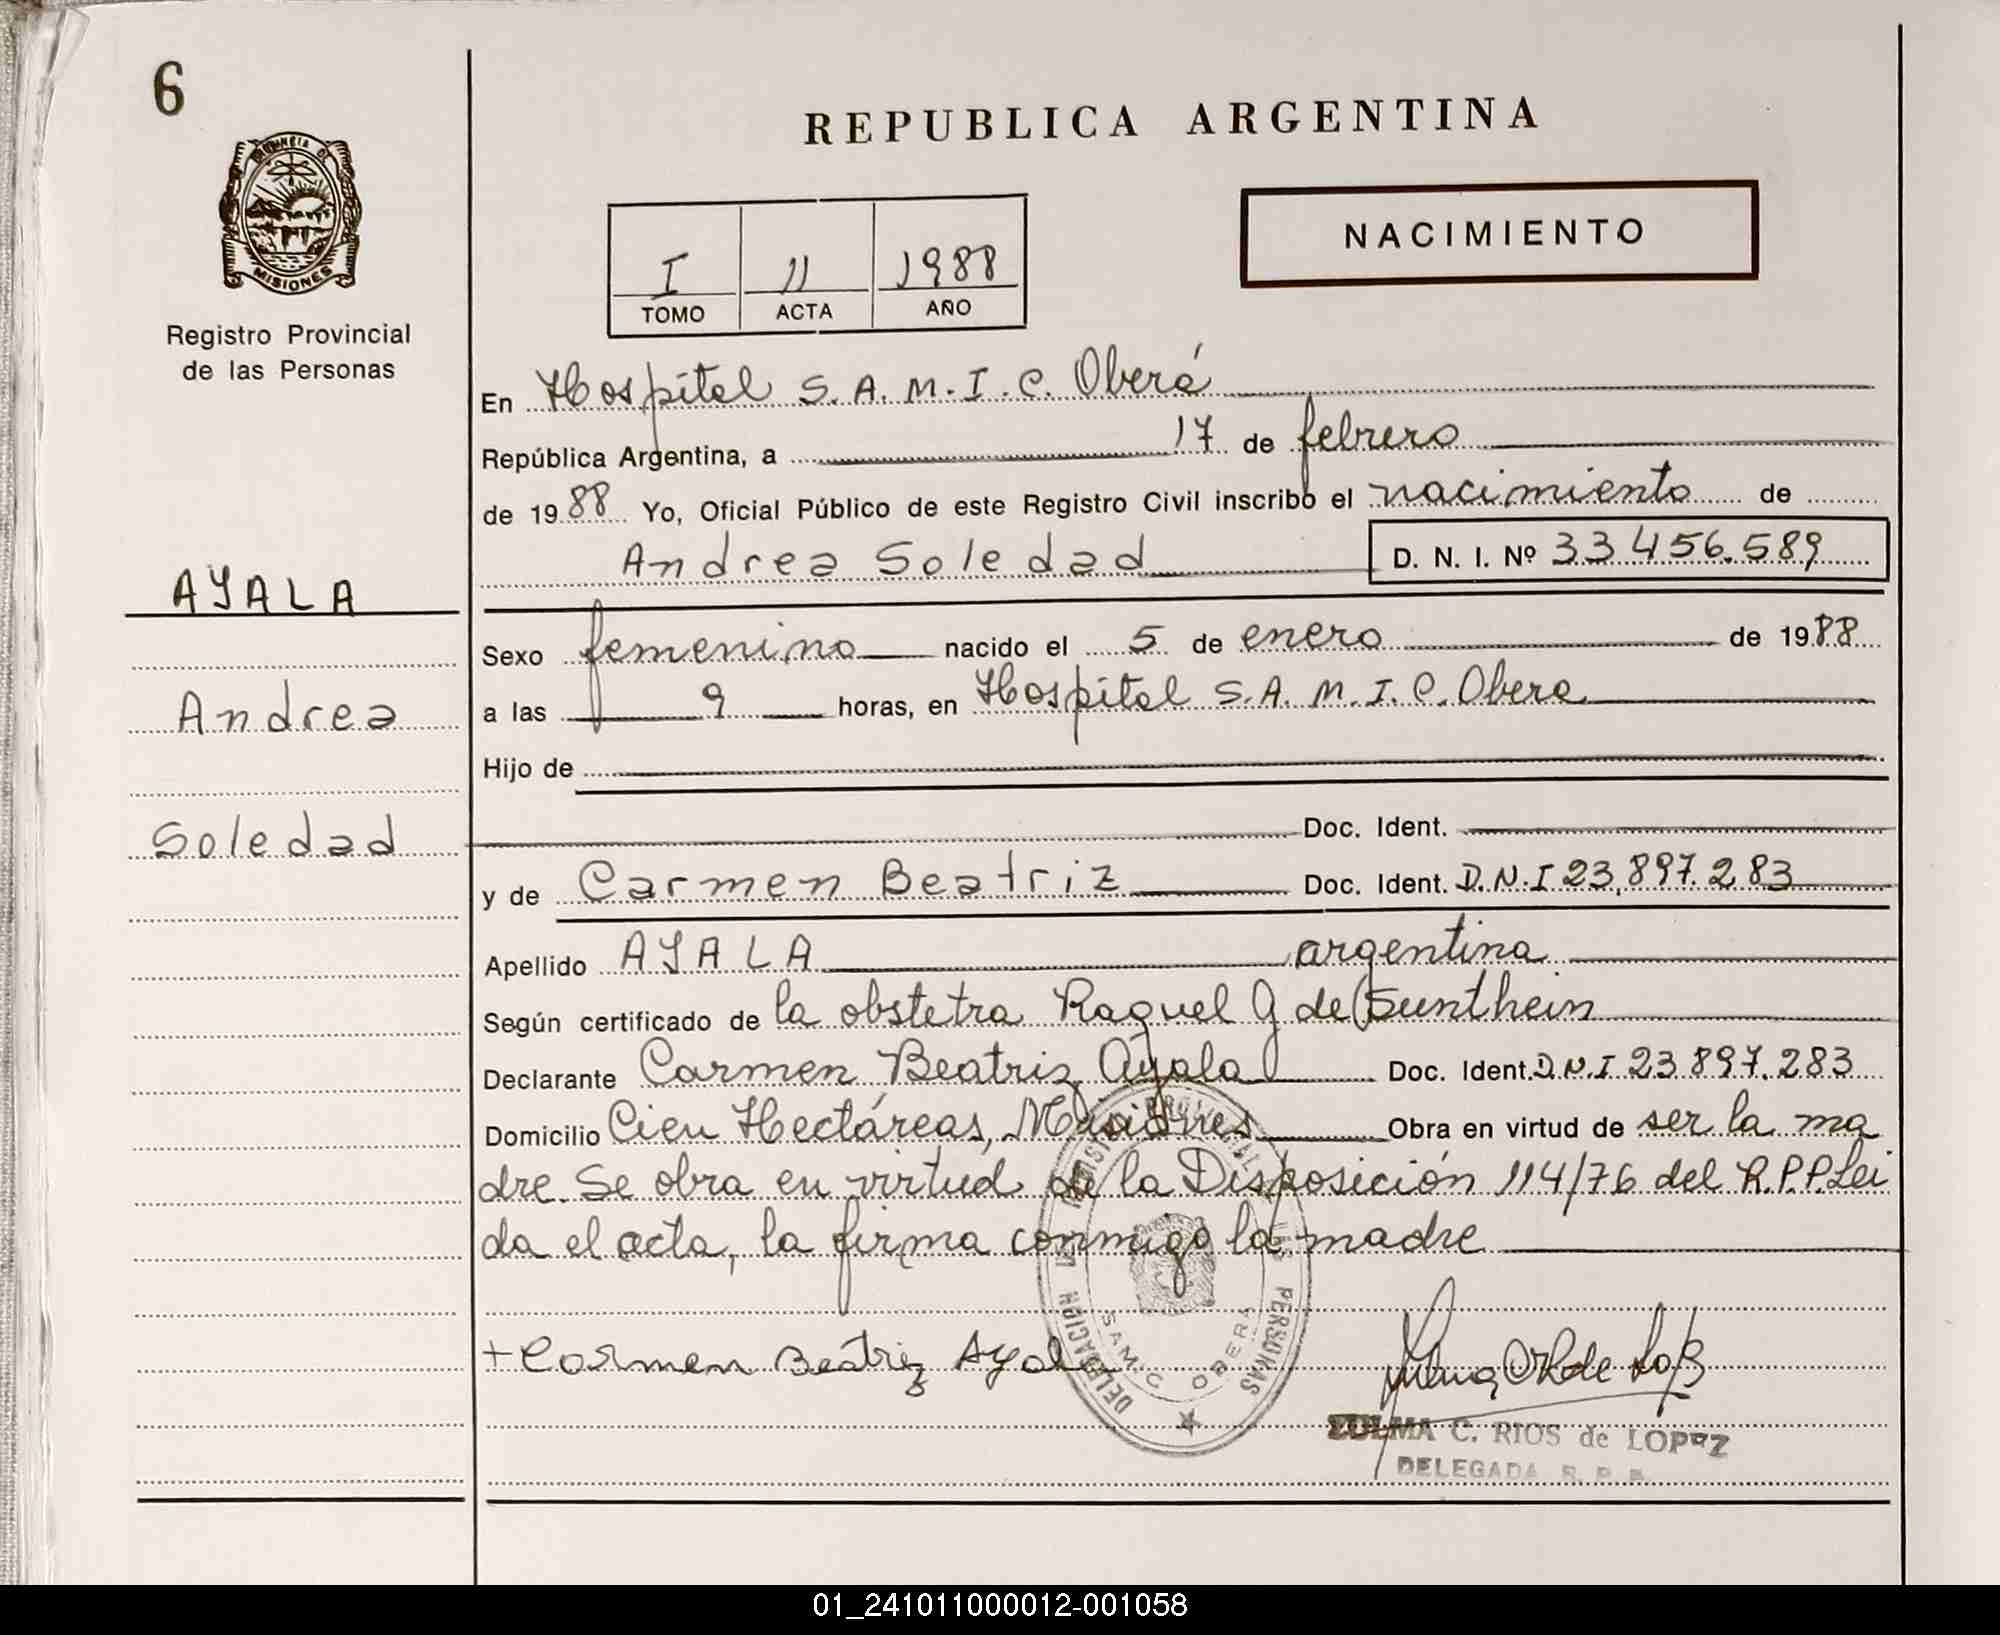 6
REPUBLICA ARGENTINA
PROVINCIA DE
MISIONES
Registro Provincial
de las Personas
NACIMIENTO
I 11 1988
TOMO ACTA AÑO
En Hospital S.A.M.I.C. Oberá
República Argentina, a 17 de febrero
de 1988 Yo, Oficial Público de este Registro Civil inscribo el nacimiento de
Andrea Soledad D. N. I. Nº 33.456.589
AYALA
Andrea
Soledad
Sexo femenino nacido el 5 de enero de 1988
a las 9 horas, en Hospital S.A.M.I.C. Obera
Hijo de
Doc. Ident.
y de Carmen Beatriz Doc. Ident. D.N.I 23.897.283
Apellido AYALA argentina
Según certificado de la obstetra Raquel G de Gunthein
Declarante Carmen Beatriz Ayala Doc. Ident. D.N.I 23.897.283
Domicilio Cien Hectáreas, Misiones Obra en virtud de ser la ma
dre. Se obra en virtud de la Disposición 114/76 del R.P.P. Lei
da el acta, la firma conmigo la madre
+ Carmen Beatriz Ayala
DELEGACION DEL REGISTRO PROVINCIAL DE LAS PERSONAS
SAMIC OBERA
ZULMA C. RIOS de LOPEZ
DELEGADA R. P. P.
01_241011000012-001058